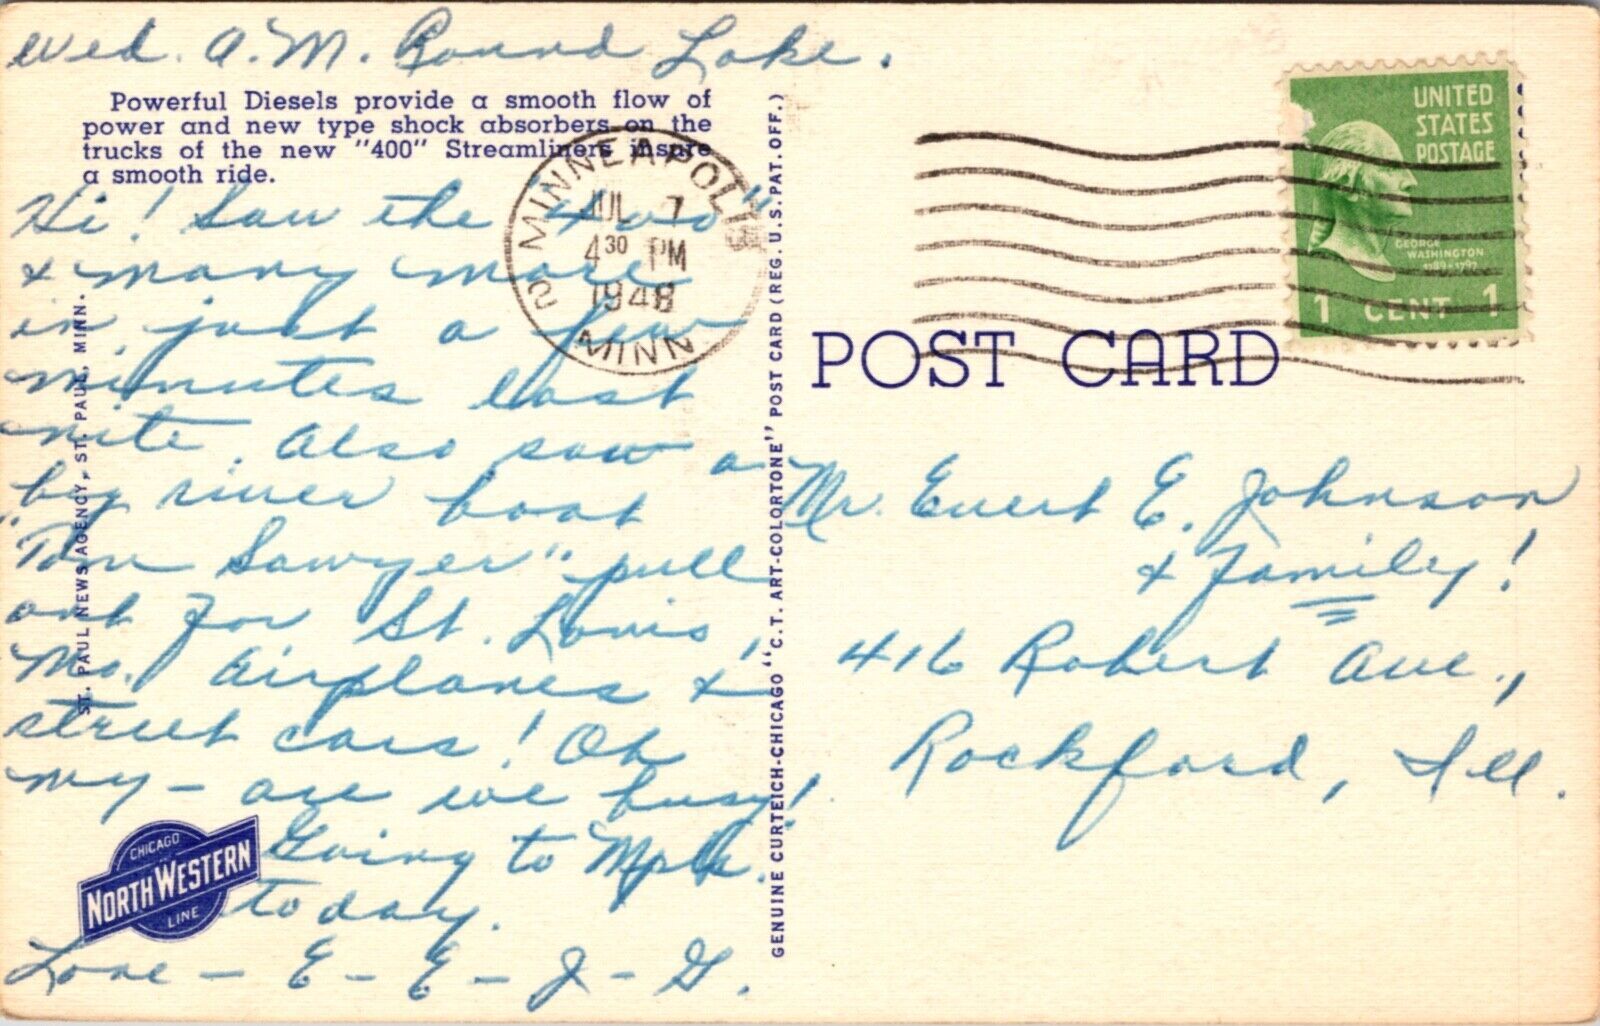 Wed. A.M. Round Lake.
Powerful Diesels provide a smooth flow of
power and new type shock absorbers on the
trucks of the new "400" Streamliners inspre
a smooth ride.
Hi! Saw the "400"
& many more
in just a few
minutes last
nite. Also saw a
big river boat
"Tom Sawyer" pull
out for St. Louis,
Mo. Airplanes &
street cars! Oh
my - are we busy!
Going to Mpls.
today.
Love - E - E - J - G.
CHICAGO
NORTH WESTERN
LINE
ST. PAUL NEWS AGENCY, ST. PAUL, MINN.
MINNEAPOLIS
JUL 7
4 30 PM
1948
MINN.
2
GENUINE CURTEICH-CHICAGO "C.T. ART-COLORTONE" POST CARD (REG. U.S. PAT. OFF.)
POST CARD
UNITED
STATES
POSTAGE
GEORGE
WASHINGTON
1789-1797
1 CENT 1
Mr. Evert E. Johnson
& Family!
416 Robert Ave.,
Rockford, Ill.